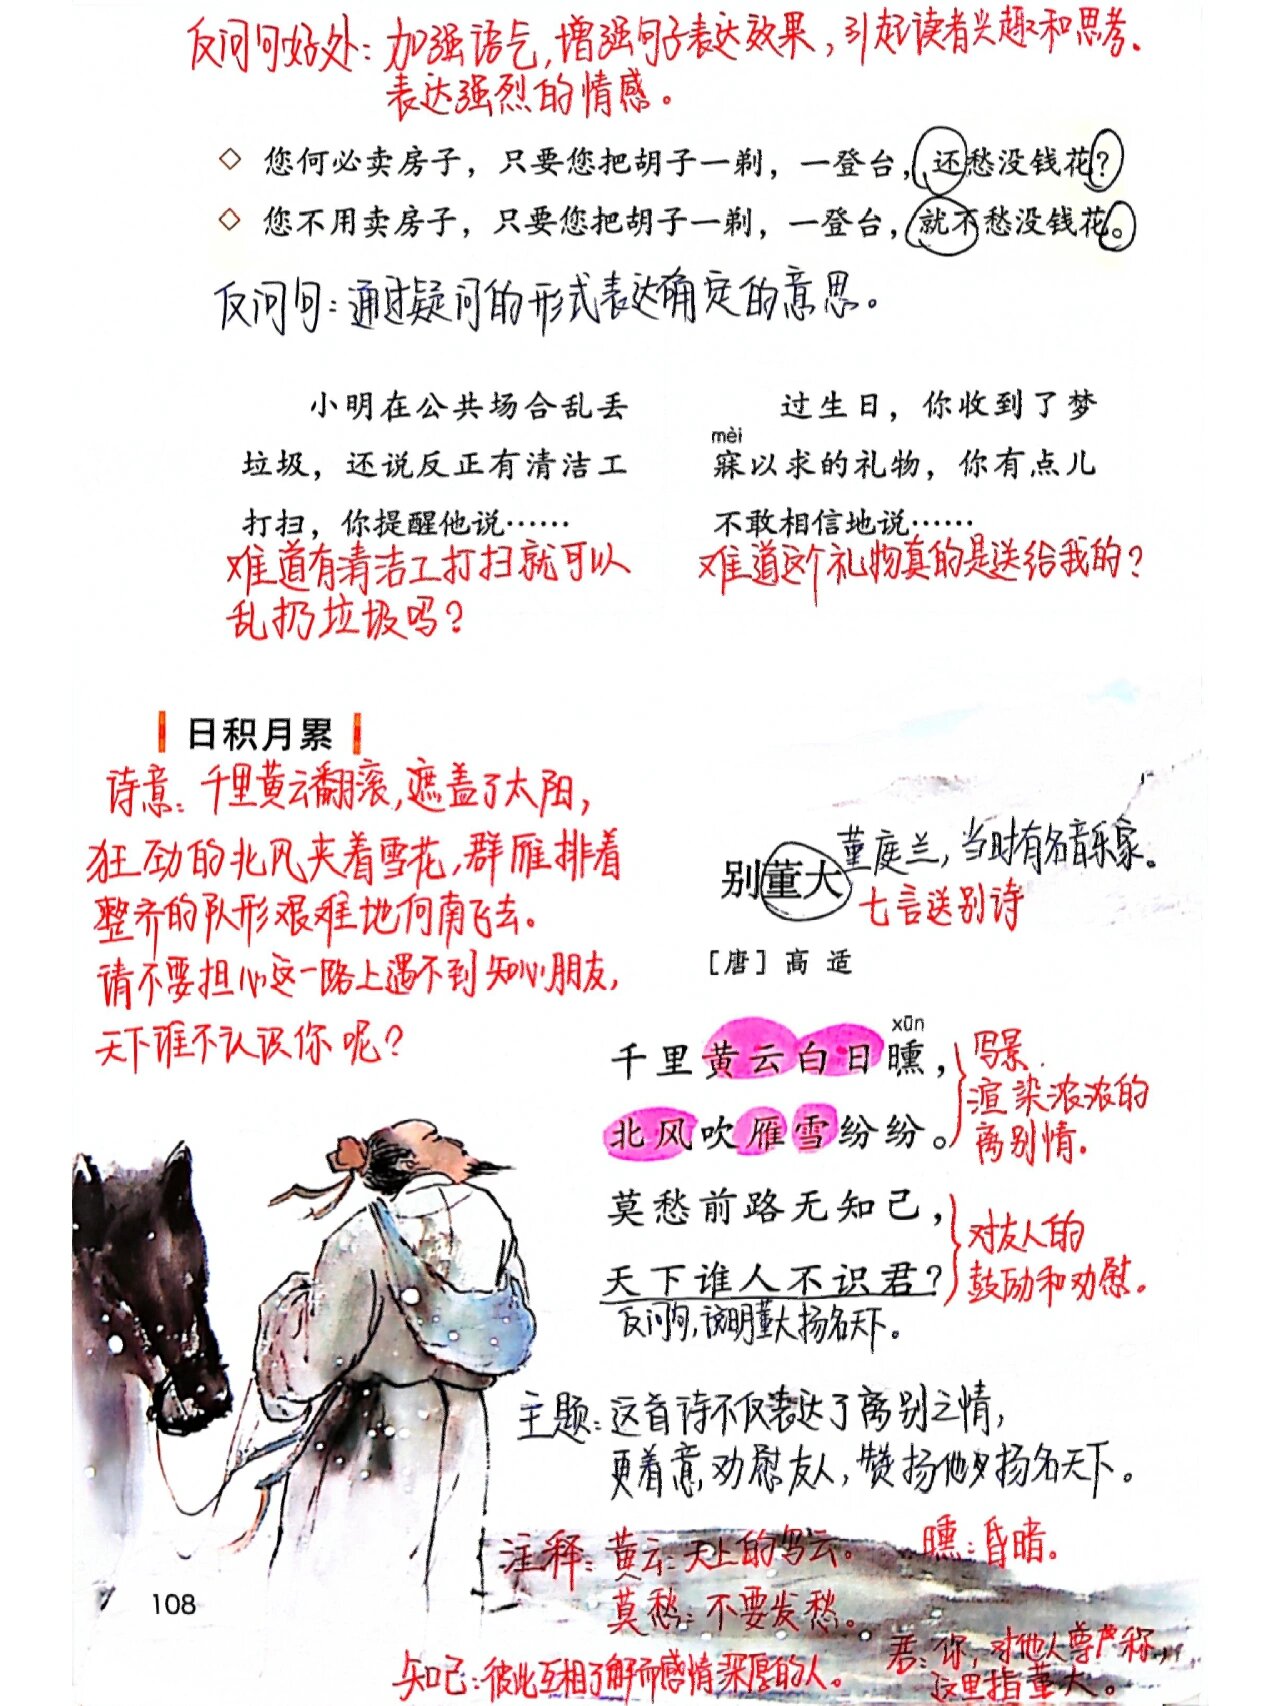 反问句好处：加强语气，增强句子表达效果，引起读者兴趣和思考。
表达强烈的情感。
◇ 您何必卖房子，只要您把胡子一剃，一登台，还愁没钱花？
◇ 您不用卖房子，只要您把胡子一剃，一登台，就不愁没钱花。
反问句：通过疑问的形式表达确定的意思。
小明在公共场合乱丢
垃圾，还说反正有清洁工
打扫，你提醒他说……
难道有清洁工打扫就可以
乱扔垃圾吗？
过生日，你收到了梦
mèi
寐以求的礼物，你有点儿
不敢相信地说……
难道这个礼物真的是送给我的？
日积月累
诗意：千里黄云翻滚，遮盖了太阳，
狂劲的北风夹着雪花，群雁排着
整齐的队形艰难地向南飞去。
请不要担心这一路上遇不到知心朋友，
天下谁不认识你呢？
别董大
董庭兰，当时有名音乐家。
七言送别诗
［唐］高适
xūn
千里黄云白日曛，
北风吹雁雪纷纷。
写景．
渲染浓浓的
离别情．
莫愁前路无知己，
天下谁人不识君？
对友人的
鼓励和劝慰。
反问句，说明董大扬名天下。
主题：这首诗不仅表达了离别之情，
更着意劝慰友人，赞扬他扬名天下。
注释：黄云：天上的乌云。
曛：昏暗。
莫愁：不要发愁。
君：你，对他人尊称，
这里指董大。
知己：彼此互相了解而感情深厚的人。
108